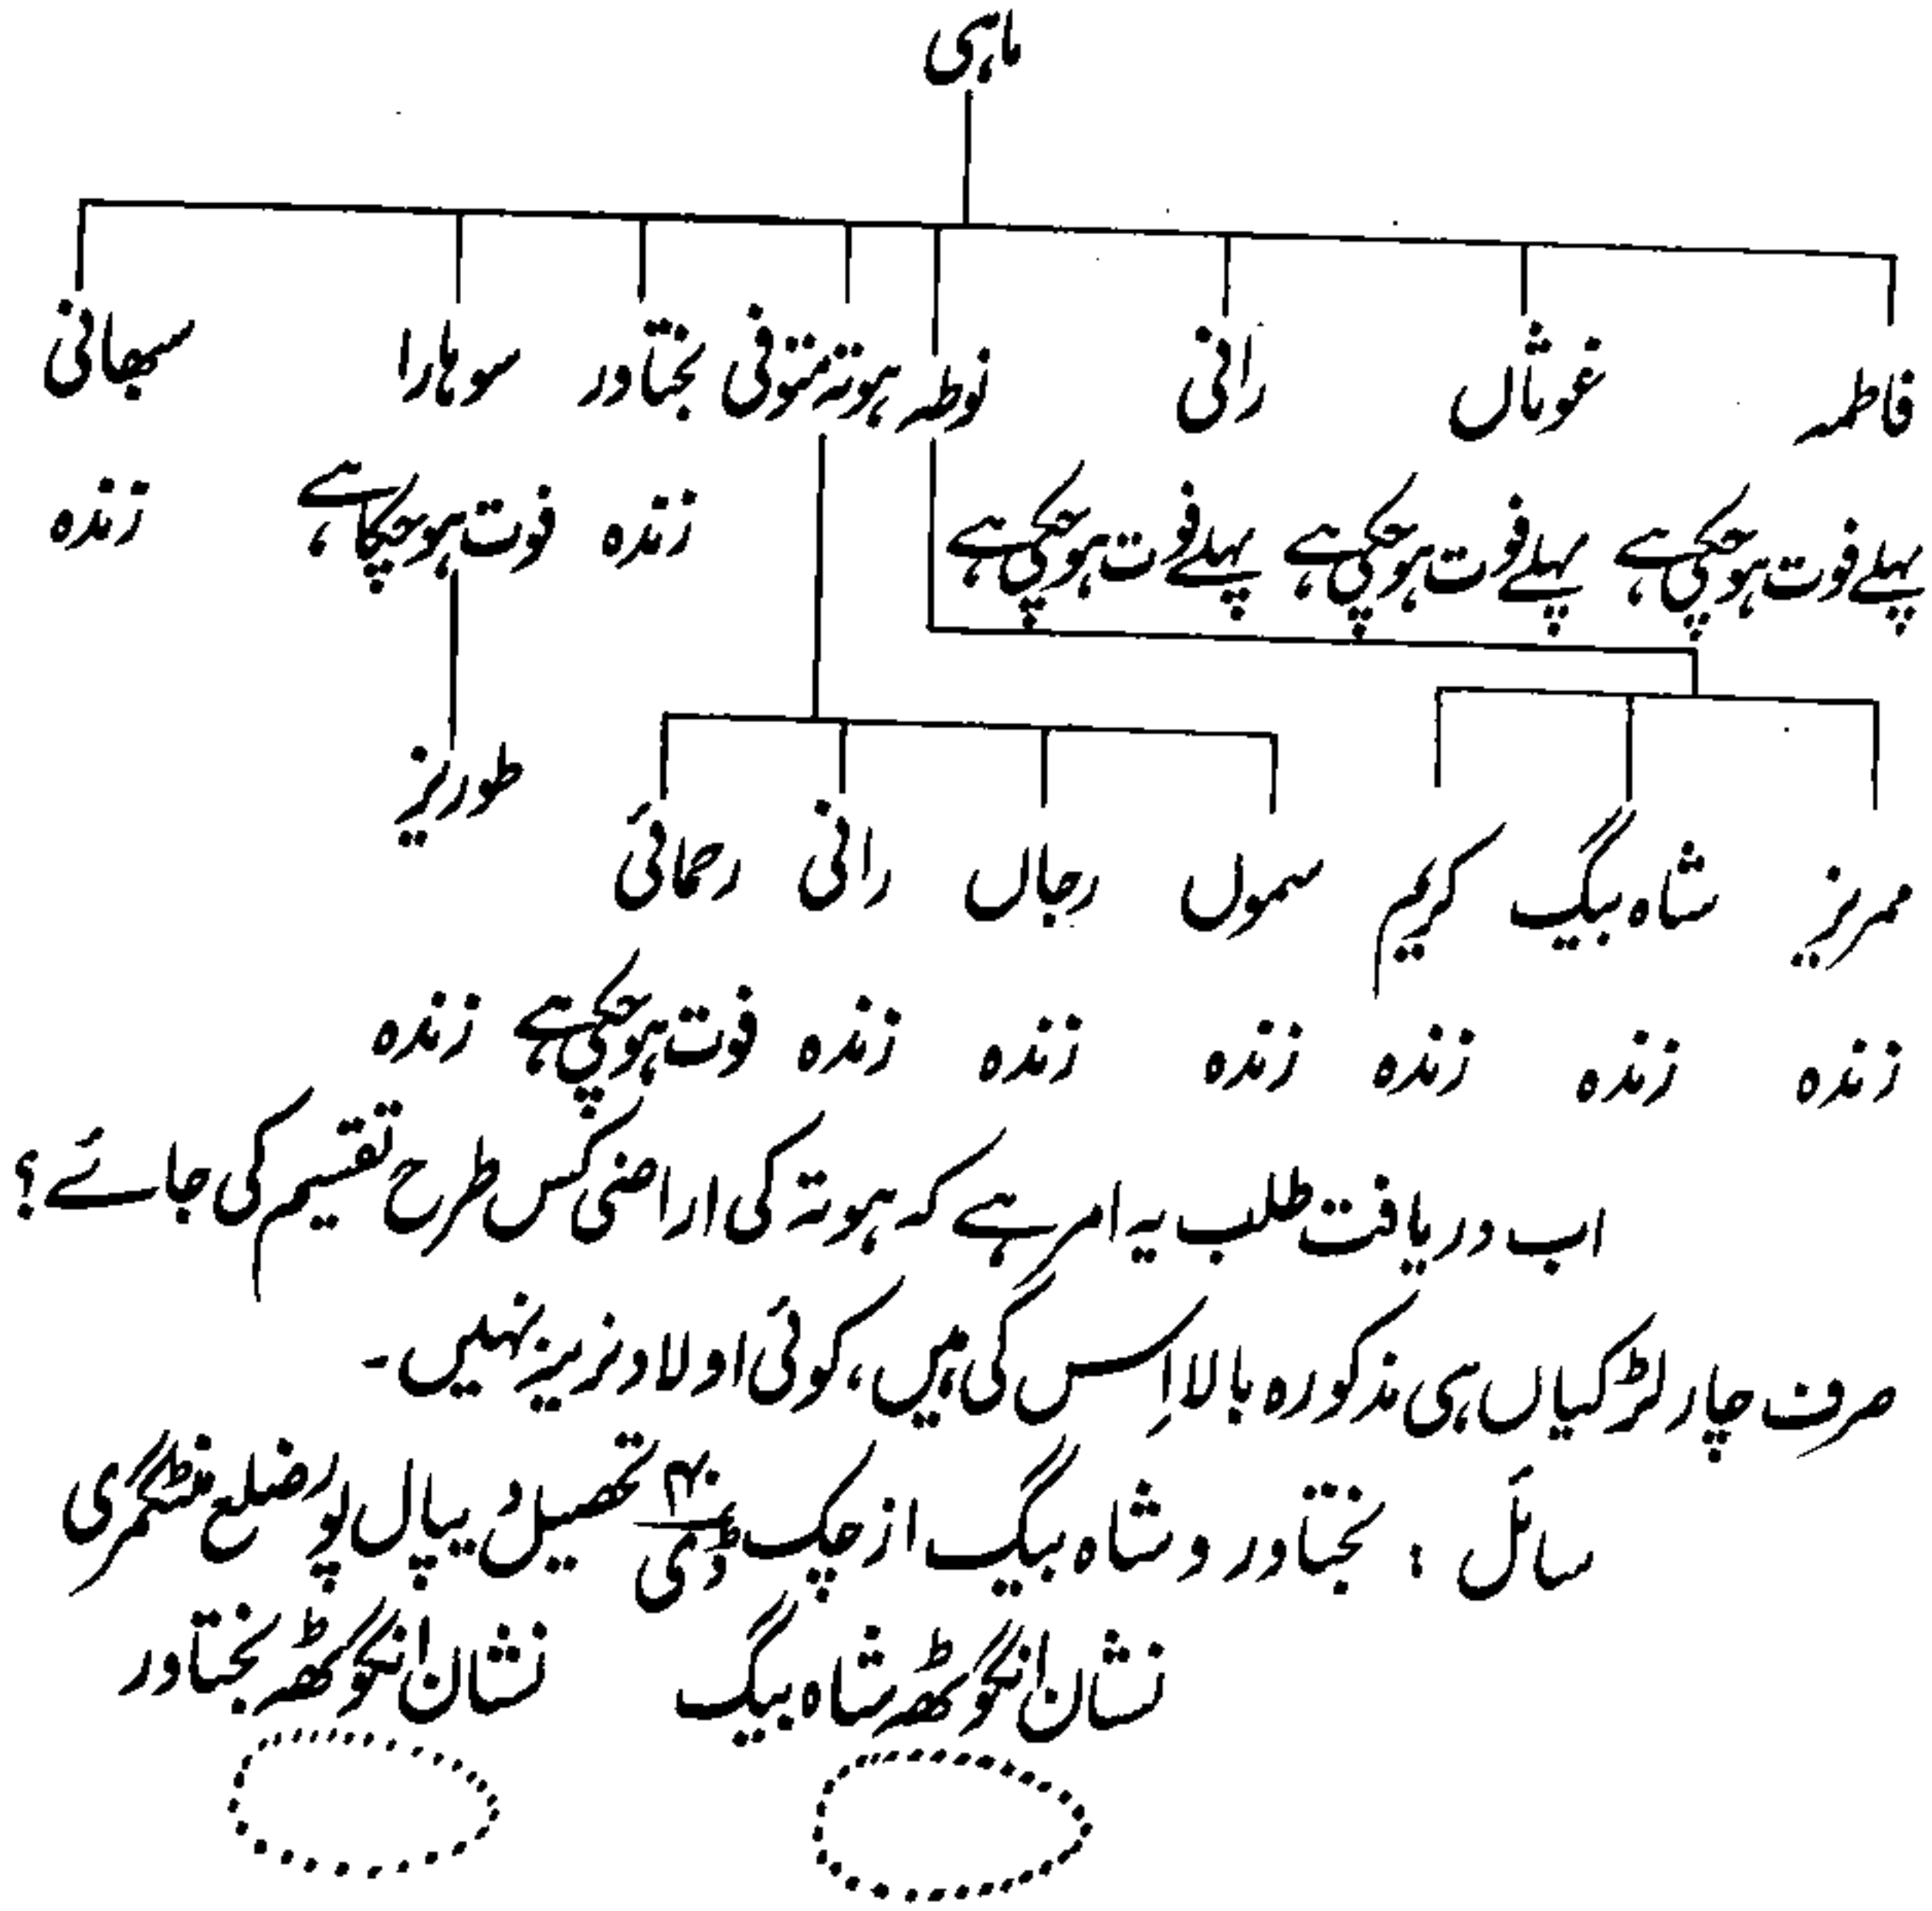 ماہی
فاطمہ غوثاں رانی نوطہ ہوتہ متوفی بختاور سوہارا سبھانی
پہلے فوت ہوچکی ہے پہلے فوت ہوچکی ہے پہلے فوت ہوچکی ہے زندہ فوت ہوچکا ہے زندہ
طوریز
ممریز شاہ بیگ کریم سموں رجاں رانی رحمائی
زندہ زندہ زندہ زندہ زندہ زندہ فوت ہوچکی ہے زندہ
اب دریافت طلب یہ امر ہے کہ ہوتہ کی اراضی کس طرح تقسیم کی جائے؟
صرف چار لڑکیاں ہی مذکورہ بالا اِس کی ہیں، کوئی اولاد نرینہ نہیں۔
سائل: بختاور و شاہ بیگ از چک تحصیل دیپال پور ضلع منٹگمری
نشان انگوٹھہ شاہ بیگ نشان انگوٹھہ بختاور